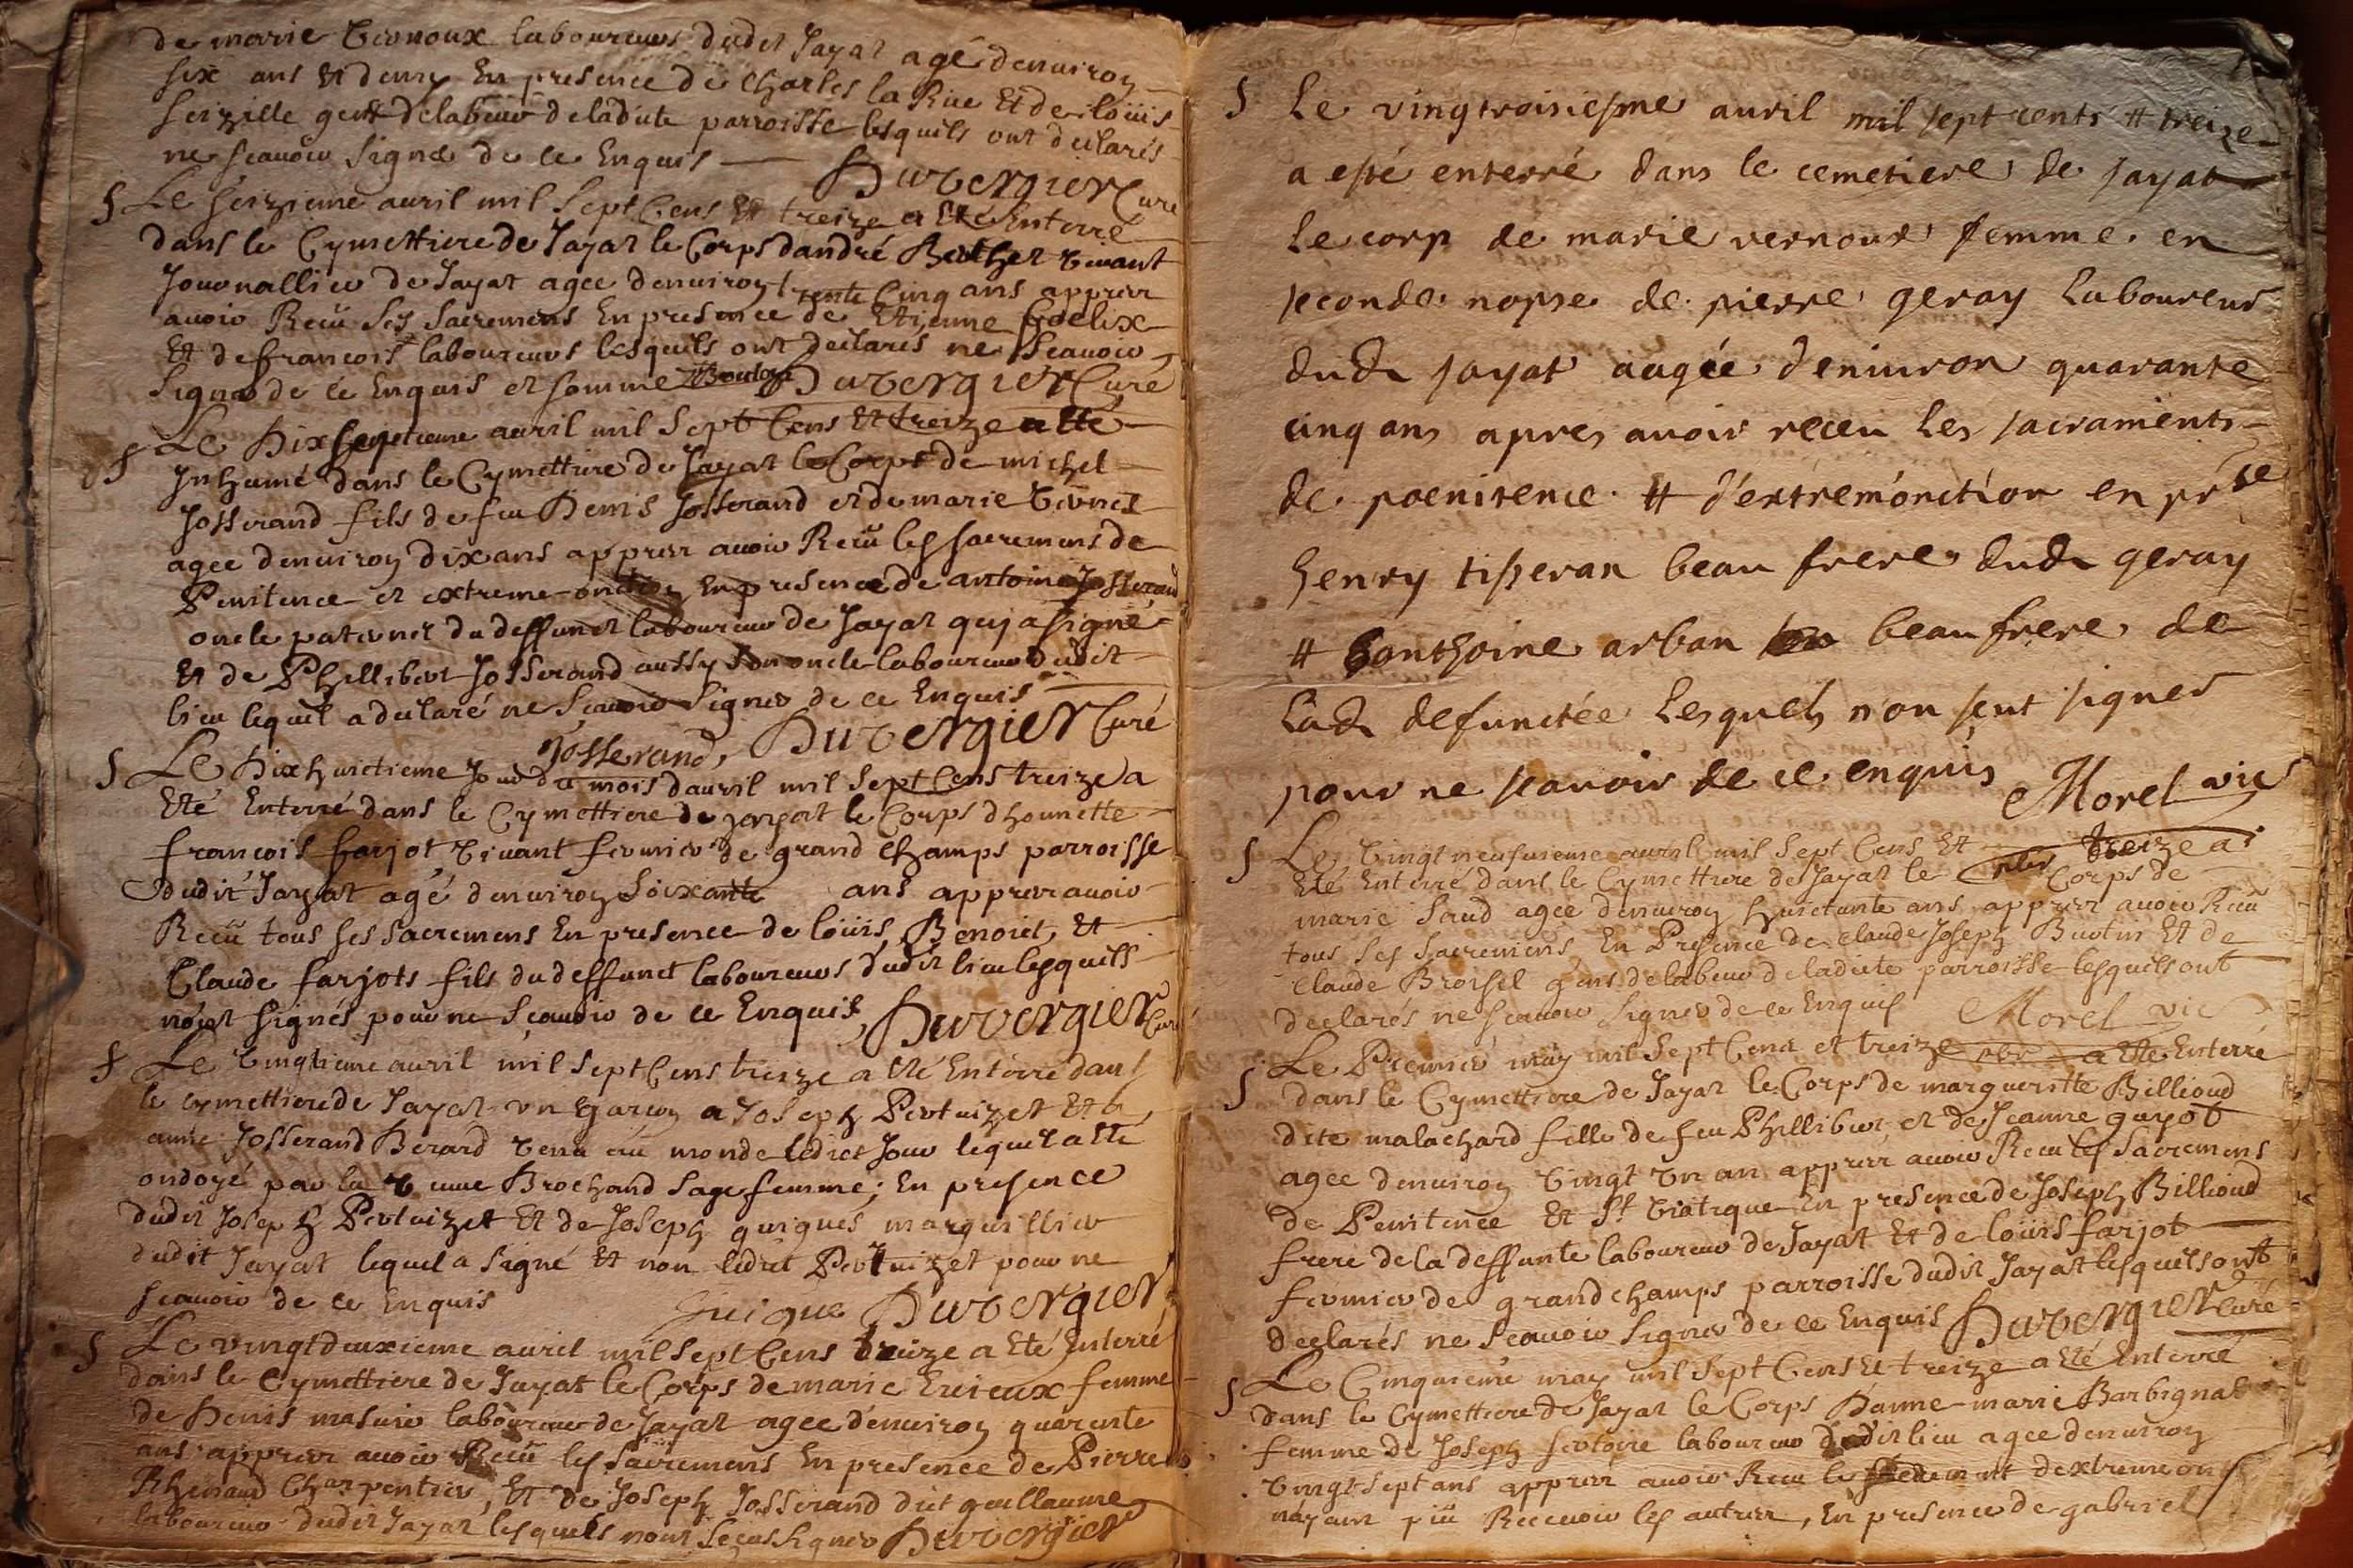 de marie Vernoux laboureurs dudit Jayat agé denuiron
six ans et demy En presence de Charles la Rue Et de loüis
gens delabeur deladite parroisse lesquels ont declarés
ne scauoir signer de ce Enquis Duvergier Curé
§ Le seizieme auril mil Sept Cens Et treize a Eté Enterré
dans le Cymettiere de Jayat le Corps dandré Bathet viuant
Journallier de Jayat agee denuiron trente Cinq ans apprez
auoir Receü ses sacremens En presence de Etienne foelix
Et defrancois laboureurs lesquels ont declarés ne Scauoir
signer de ce Enquis et sommé Duvergier Curé
§ Le Dixseptieme auril mil Sept Cens Et treize a Eté
Inhumé dans le Cymettiere de Jayat le Corps de michel
Josserand fils defeu Denis Josserand et de marie
agee denuiron dix ans apprez auoir Receü les sacremens de
Penitence et extreme-onction En presence de antoine Josserand
oncle paternel du deffunct laboureur de Jayat quj a signé
Et de Phillibert Josserand aussy son oncle laboureur dudit
lieu lequel a declaré ne Scauoir Signer de ce Enquis
Josserand, Duvergier Curé
§ Le Dixhuictieme Jour du mois dauril mil Sept Cens treize a
Eté Enterré dans le Cymettiere de jayat le Corps dhonnette
francois farjot viuant fermier de grand Champs parroisse
dudit Jayat agé denuiron soixante ans apprez auoir
Receü tous ses sacremens En presence de loüis, Benoict, Et
Claude farjots fils du deffunct laboureurs dudit lieu lesquells
nont signés pour ne Scauoir de ce Enquis Duvergier Curé
§ Le vingtieme auril mil sept Cens treize a eté Enterré dans
le cymettiere de Jayat vn garçon a Joseph Pertuizet Et a
anne Josserand Berard venu au monde ledict Jour lequel a eté
ondoyé par la veuue Brochand sage femme; En presence
dudit Joseph Pertuizet Et de Joseph guigues marguillier
dudit Jayat lequel a signé Et non ledict Pertuizet pour ne
scauoir de ce Enquis Guigue Duvergier
§ Le vingtdeuxieme auril mil Sept Cens treize a Eté Enterré
dans le Cymettiere de Jayat le Corps de marie Erieux femme
de Denis masuir laboureur de Jayat agee denuiron quarente
ans apprez auoir Receü les sacremens En presence de Pierre
Rhenaud Charpentier, Et de Joseph Josserand dict guillaume
laboureur dudit Jayat lesquels nont sceus signer Duvergier
§ Le vingtroisiesme auril mil sept cents et treize
a esté enterré dans le cemetiere de jayat
Le corp de marie vernoux femme en
seconde nopse de pierre geray Laboureur
dudt jayat aagée d'enuiron quarante
cinq ans apres auoir receu Les sacraments
de poenitence et d'extremonction en prse
henry tisseran beau frere dudt geray
et anthoine arban beau frere de
Ladt defunctée Lesquels n'on sceut signer
pour ne scauoir de ce enquis Morel vic
§ Le vingt neufuieme auril mil Sept Cens Et treize a
Eté Enterré dans le Cymettiere de Jayat le Corps de
marie Saud agee denuiron huictante ans apprez auoir Receü
tous ses sacremens, En Presence de claude Joseph Buatin Et de
Claude Broisel gens delabeur deladicte parroisse lesquels ont
declarés ne scauoir signer de ce Enquis Morel vic
§ Le Premier may mil Sept Cens et treize a Eté Enterré
dans le Cymettiere de Jayat le Corps de margueritte Billioud
dite malachard fille de feu Phillibert et de Jeanne guyot
agee denuiron vingt vn an apprez auoir Receu les Sacremens
de Penitence Et St viatique En presence de Joseph Billioud
frere de la deffunte laboureur de Jayat Et de loüis farjot
fermier de grand champs parroisse dudit Jayat lesquels ont
declarés ne Scauoir signer de ce Enquis Duvergier Curé
§ Le Cinquieme may mil Sept Cens Et treize a Eté Enterré
dans le Cymettiere de Jayat le Corps Danne-marie Barbignat
femme de Joseph sertoire laboureur dudit lieu agee denuiron
vingt Sept ans apprez auoir Receu le sacrement dextremeon
nayant pü Receuoir les autres, En presence de gabriel